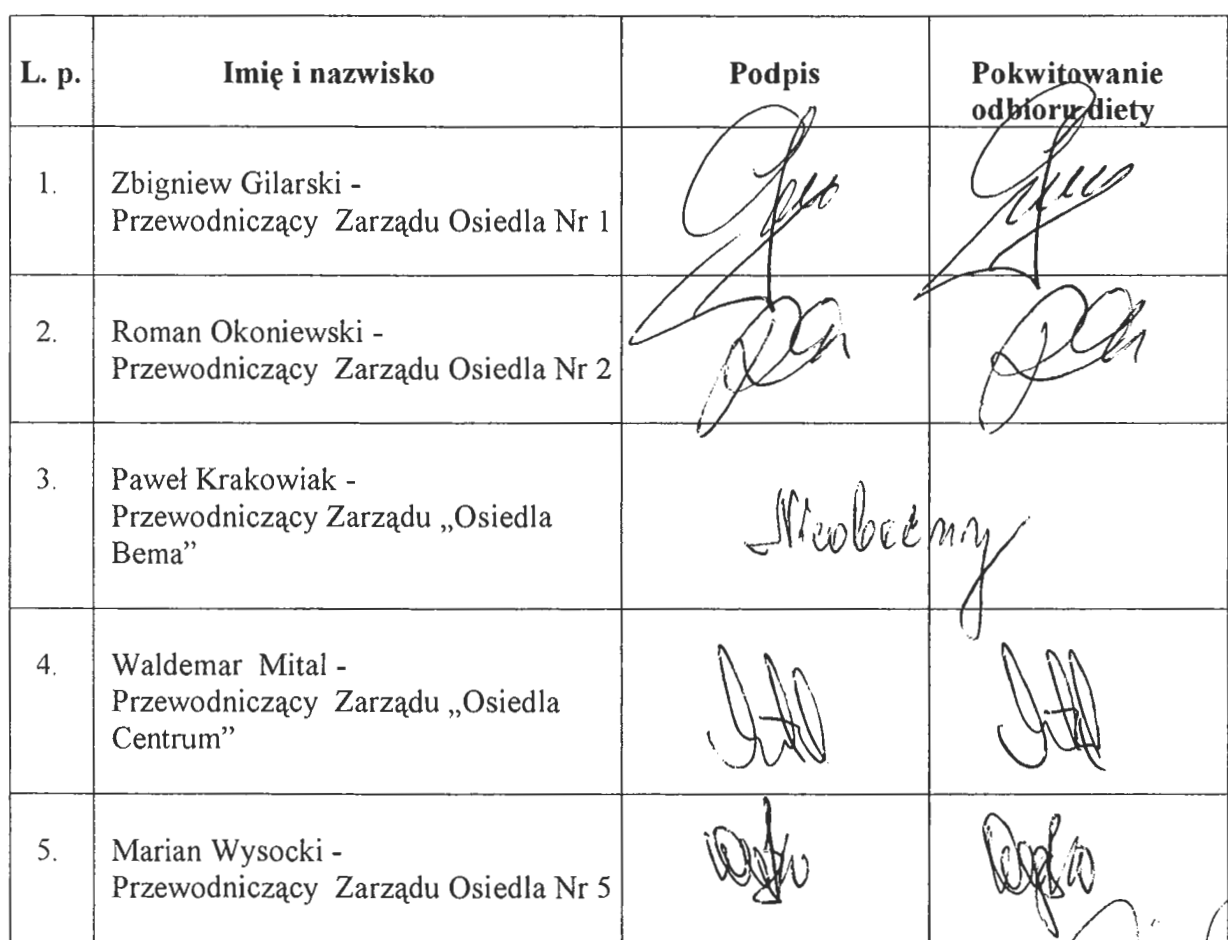 L. p. Imię i nazwisko Podpis Pokwitowanie
odbioru diety
1. Zbigniew Gilarski -
Przewodniczący Zarządu Osiedla Nr 1
2. Roman Okoniewski -
Przewodniczący Zarządu Osiedla Nr 2
3. Paweł Krakowiak -
Przewodniczący Zarządu „Osiedla
Bema”
Nieobecny
4. Waldemar Mital -
Przewodniczący Zarządu „Osiedla
Centrum”
5. Marian Wysocki -
Przewodniczący Zarządu Osiedla Nr 5